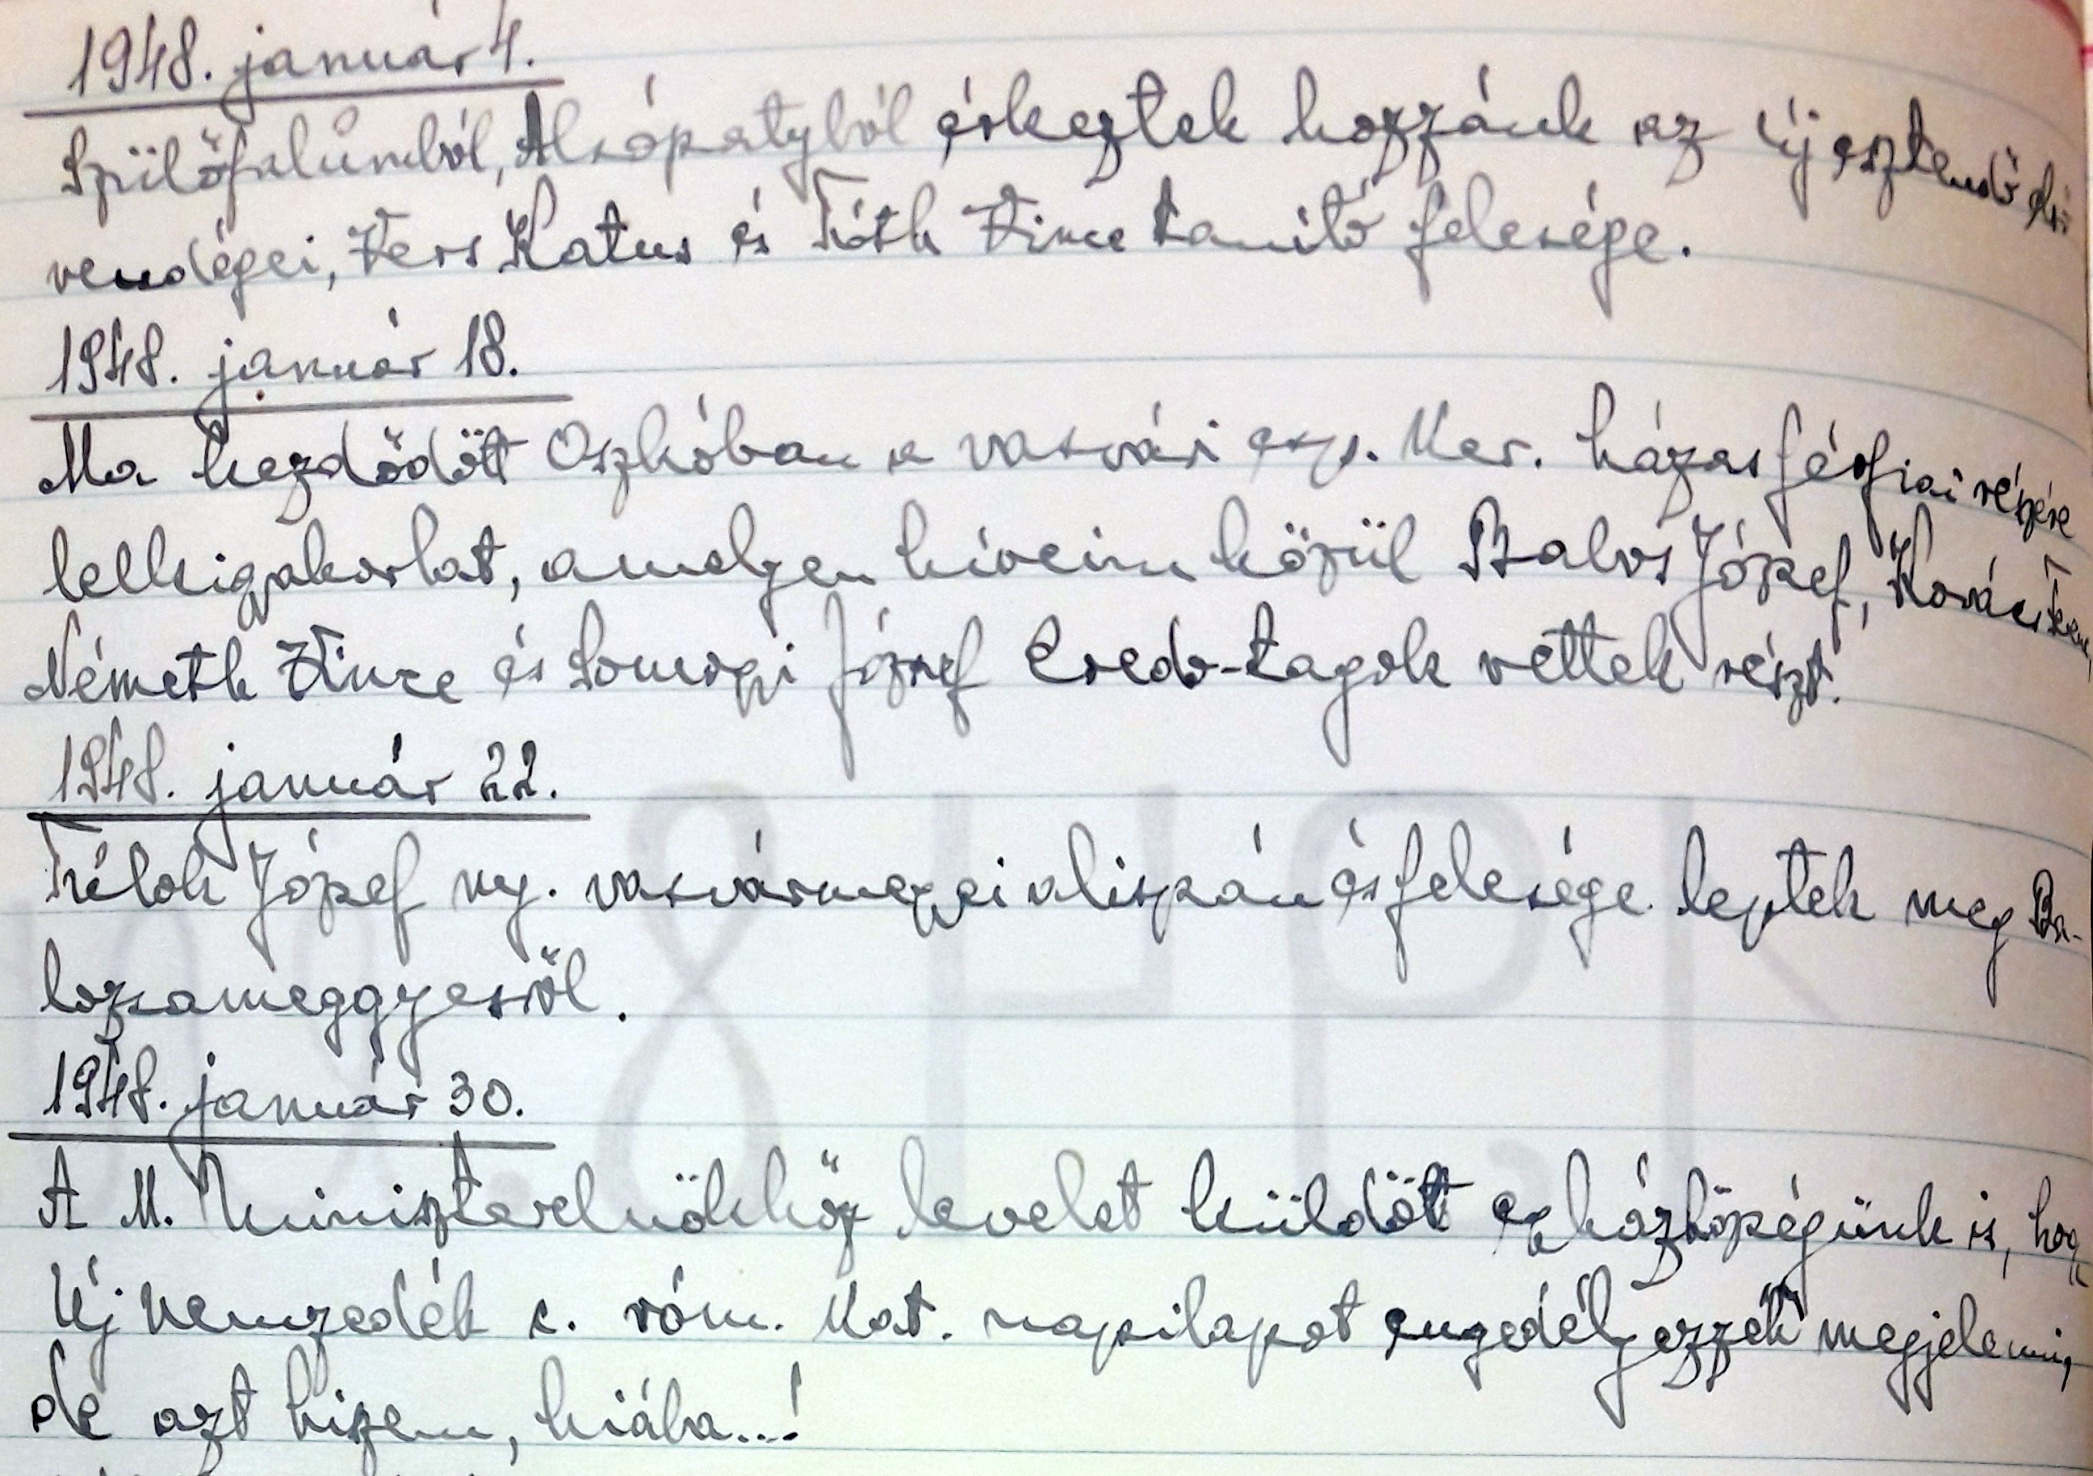 1948. január 4.
Szülőfalumból, Alsópatyból érkeztek hozzánk az új esztendő első
vendégei, Vers Katus és Tóth Vince tanító felesége.
1948. január 18.
Ma kezdődött Oszkóban a vasvári esp. Ker. házas férfiai részére
lelkigyakorlat, amelyen híveim közül Balos József, Kovács Ferenc,
Németh Vince és Somogyi József Credo-tagok vettek részt.
1948. január 22.
Télok József ny. vasvármegyei alispán és felesége leptek meg Ba-
lozsameggyesről.
1948. január 30.
A M. Miniszterelnökhöz levelet küldött egyházközségünk is, hogy
Új Nemzedék c. róm. Kat. napilapot engedélyezzék megjelenni,
de azt hiszem, hiába...!